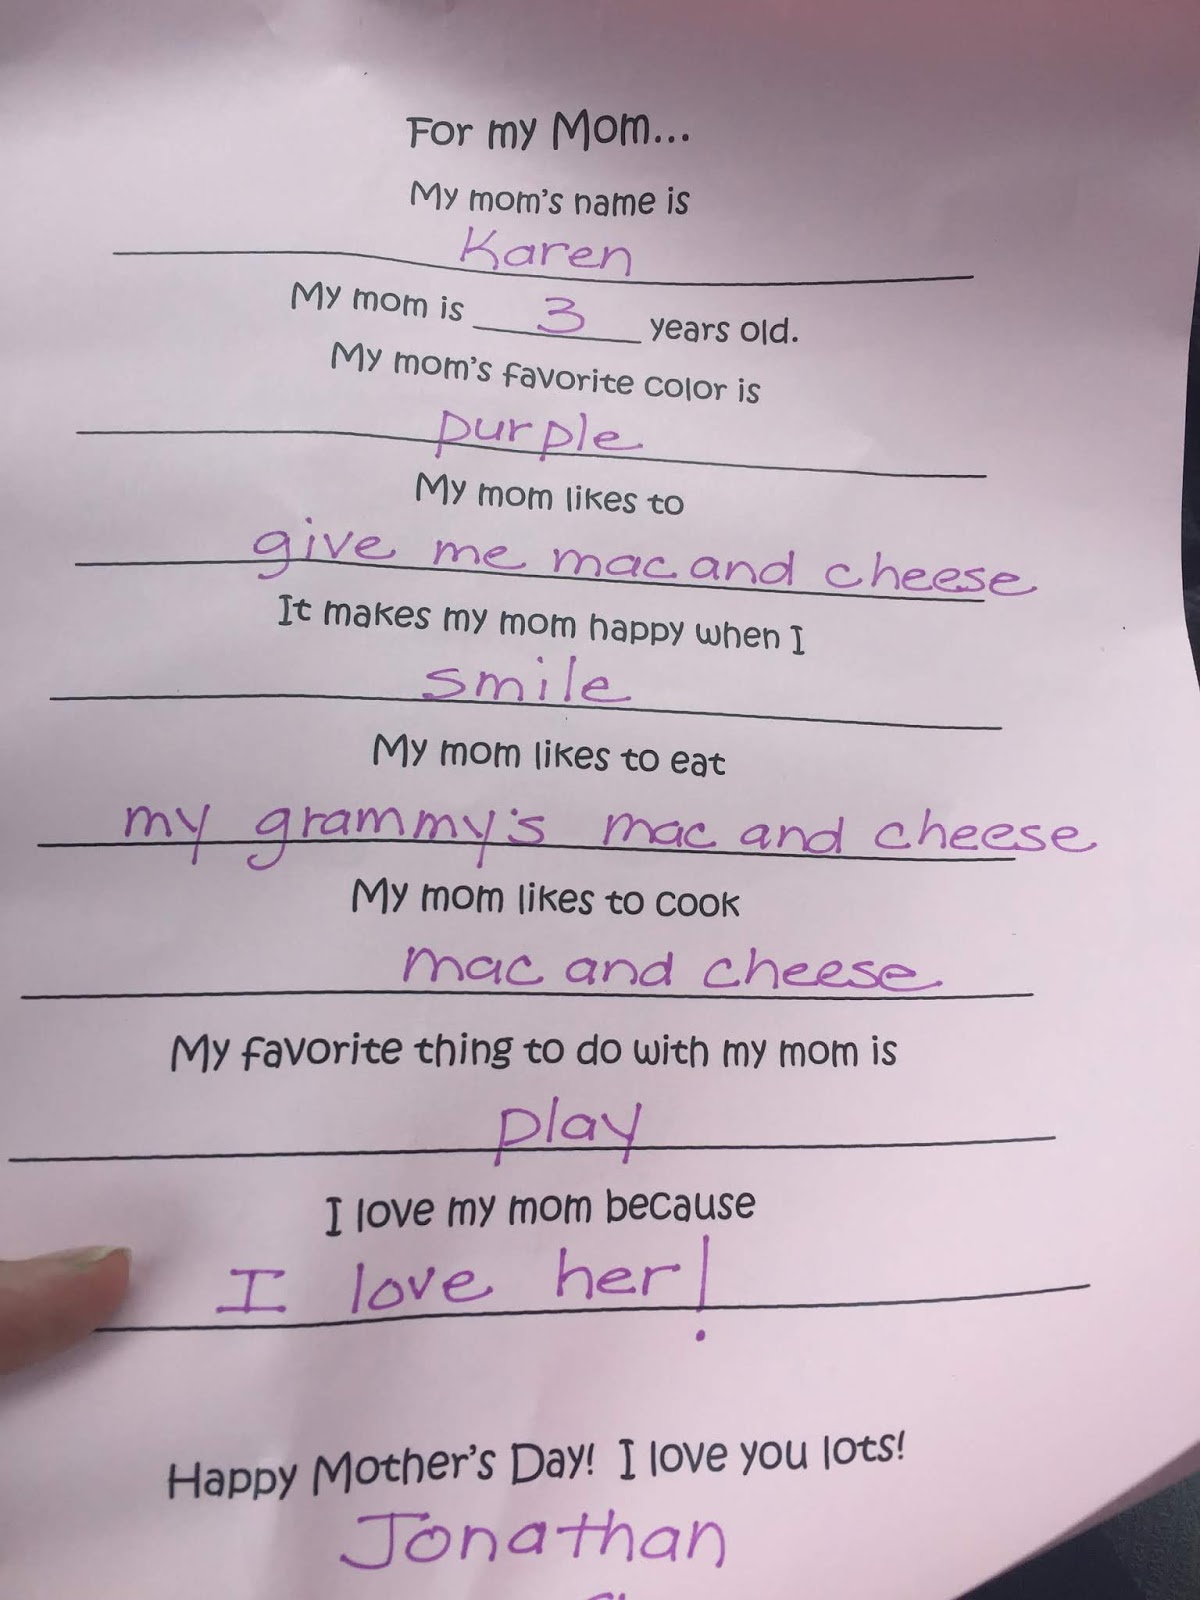 For my Mom...
My mom's name is
Karen
My mom is 3 years old.
My mom's favorite color is
purple
My mom likes to
give me mac and cheese
It makes my mom happy when I
smile
My mom likes to eat
my grammy's mac and cheese
My mom likes to cook
mac and cheese
My favorite thing to do with my mom is
play
I love my mom because
I love her!
Happy Mother's Day! I love you lots!
Jonathan